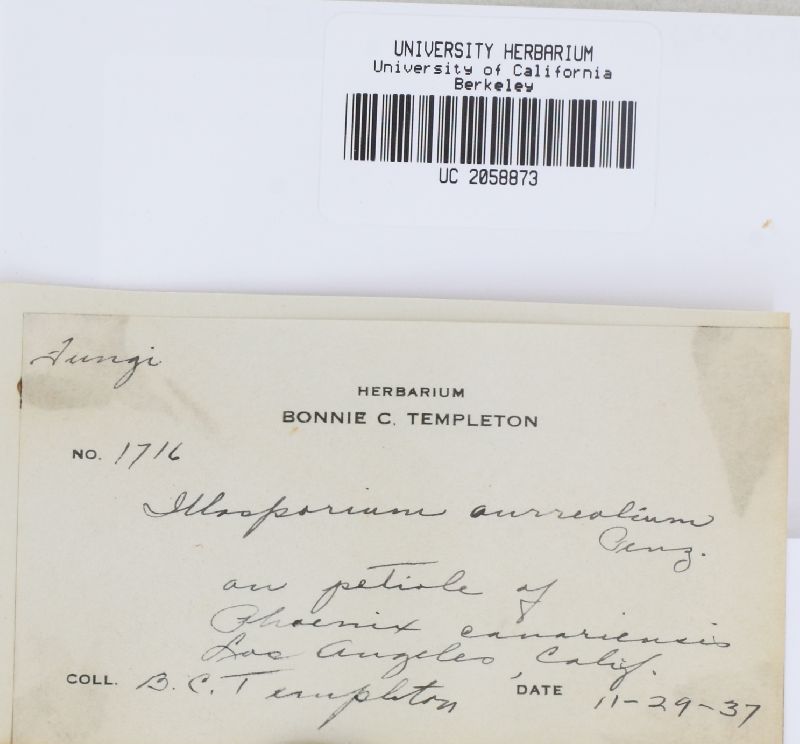 UNIVERSITY HERBARIUM
University of California
Berkeley
UC 2058873
Fungi
HERBARIUM
BONNIE C. TEMPLETON
NO. 1716
Illosporium aurreolium
Penz.
on petiole of
Phoenix canariensis
Los Angeles, Calif.
COLL. B.C. Templeton DATE 11-29-37